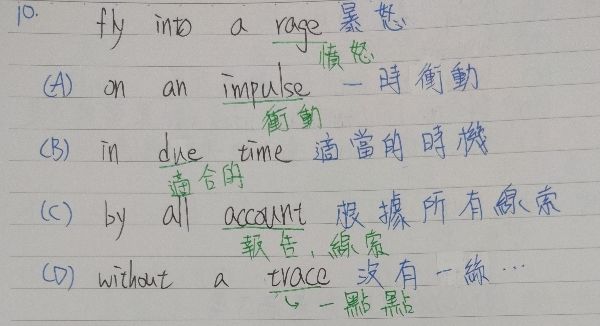 10. fly into a rage 暴怒
憤怒
(A) on an impulse 一時衝動
衝動
(B) in due time 適當的時機
適合的
(C) by all account 根據所有線索
報告、線索
(D) without a trace 沒有一絲…
↳ 一點點